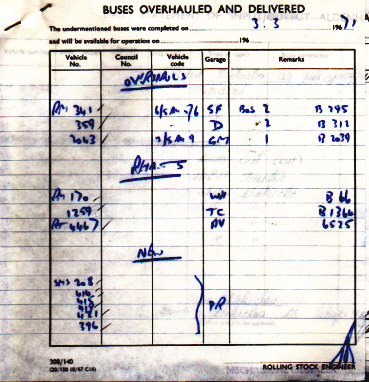 BUSES OVERHAULED AND DELIVERED
The undermentioned buses were completed on 3.3 1967 71
and will be available for operation on 196
Vehicle No. Council No. Vehicle code Garage Remarks
OVERHAULS
RM 341 6/5RM 7/6 SF BoS 2 B 295
359 D " 2 B 312
2063 2/5RM 9 GM 1 B 2039
REPAINTS
RM 170 WN B 66
1259 TC B 1364
RF 4467 AV 6525
NEW
SMS 208
414
415
419
421
396
PR
308/140
ROLLING STOCK ENGINEER